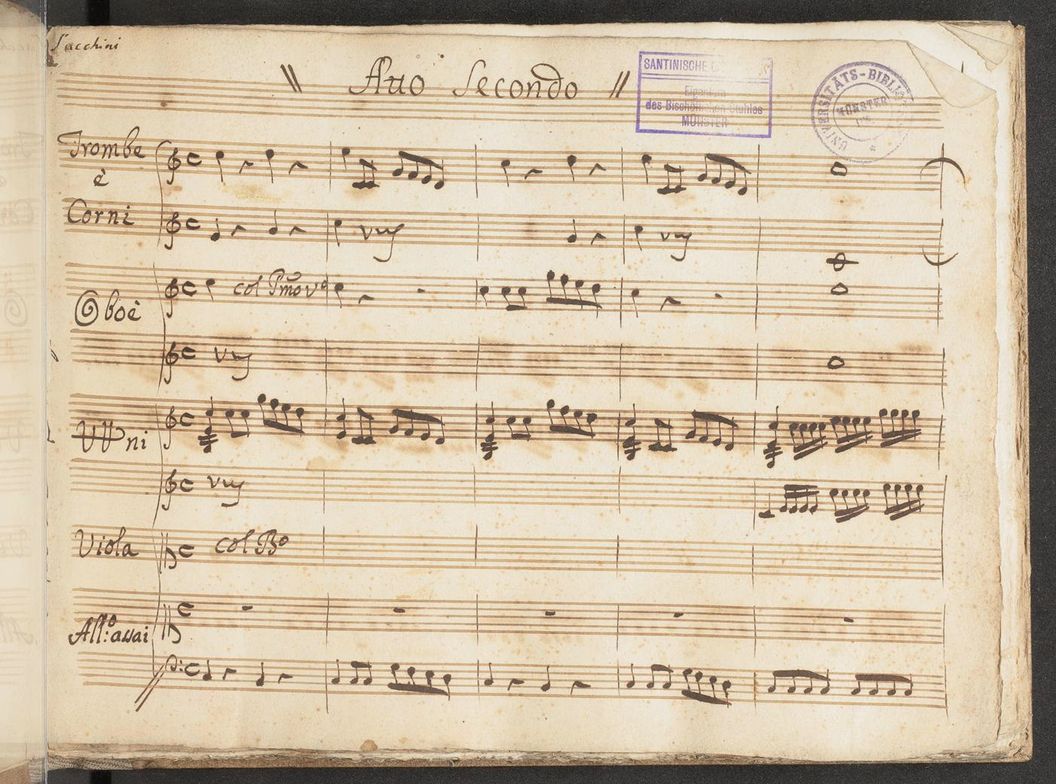 Sacchini
Atto Secondo
SANTINISCHE
Eigentum
des Bischöflichen Stuhles
MÜNSTER
UNIVERSITÄTS-BIBLIOTHEK
MÜNSTER
Trombe
è
Corni
unis
unis
Oboè
col Pmo Vo
unis
VVni
unis
Viola
col Bo
All.o assai